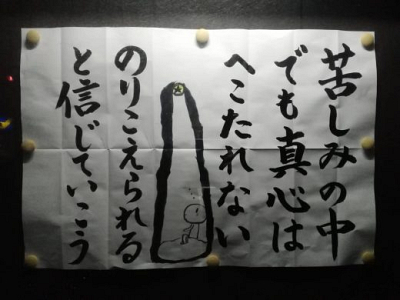 苦しみの中
でも真心は
へこたれない
のりこえられる
と信じていこう